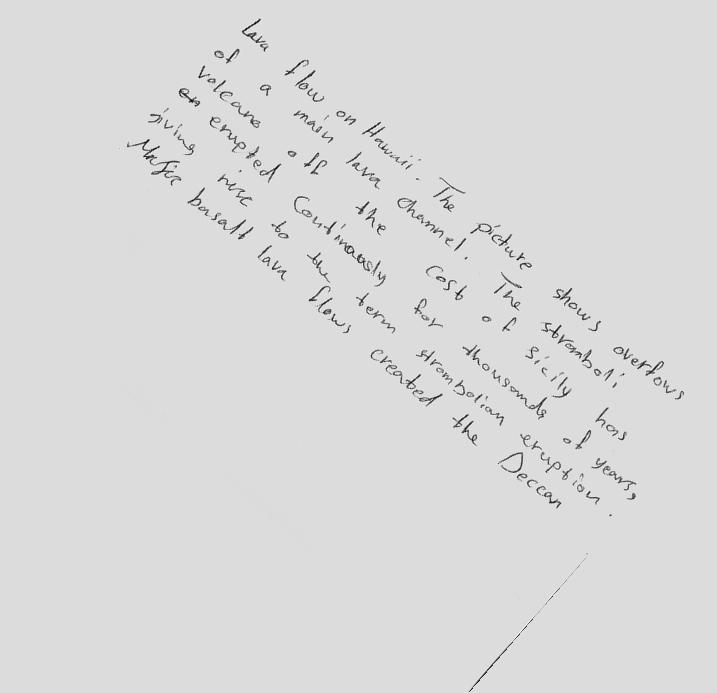 Lava flow on Hawaii. The picture shows overflows
of a main lava channel. The stromboli
volcano off the cost of sicily has
en erupted Continuously for thousands of years,
giving rise to the term strombolian eruption.
Mafic basalt lava flows created the Deccan